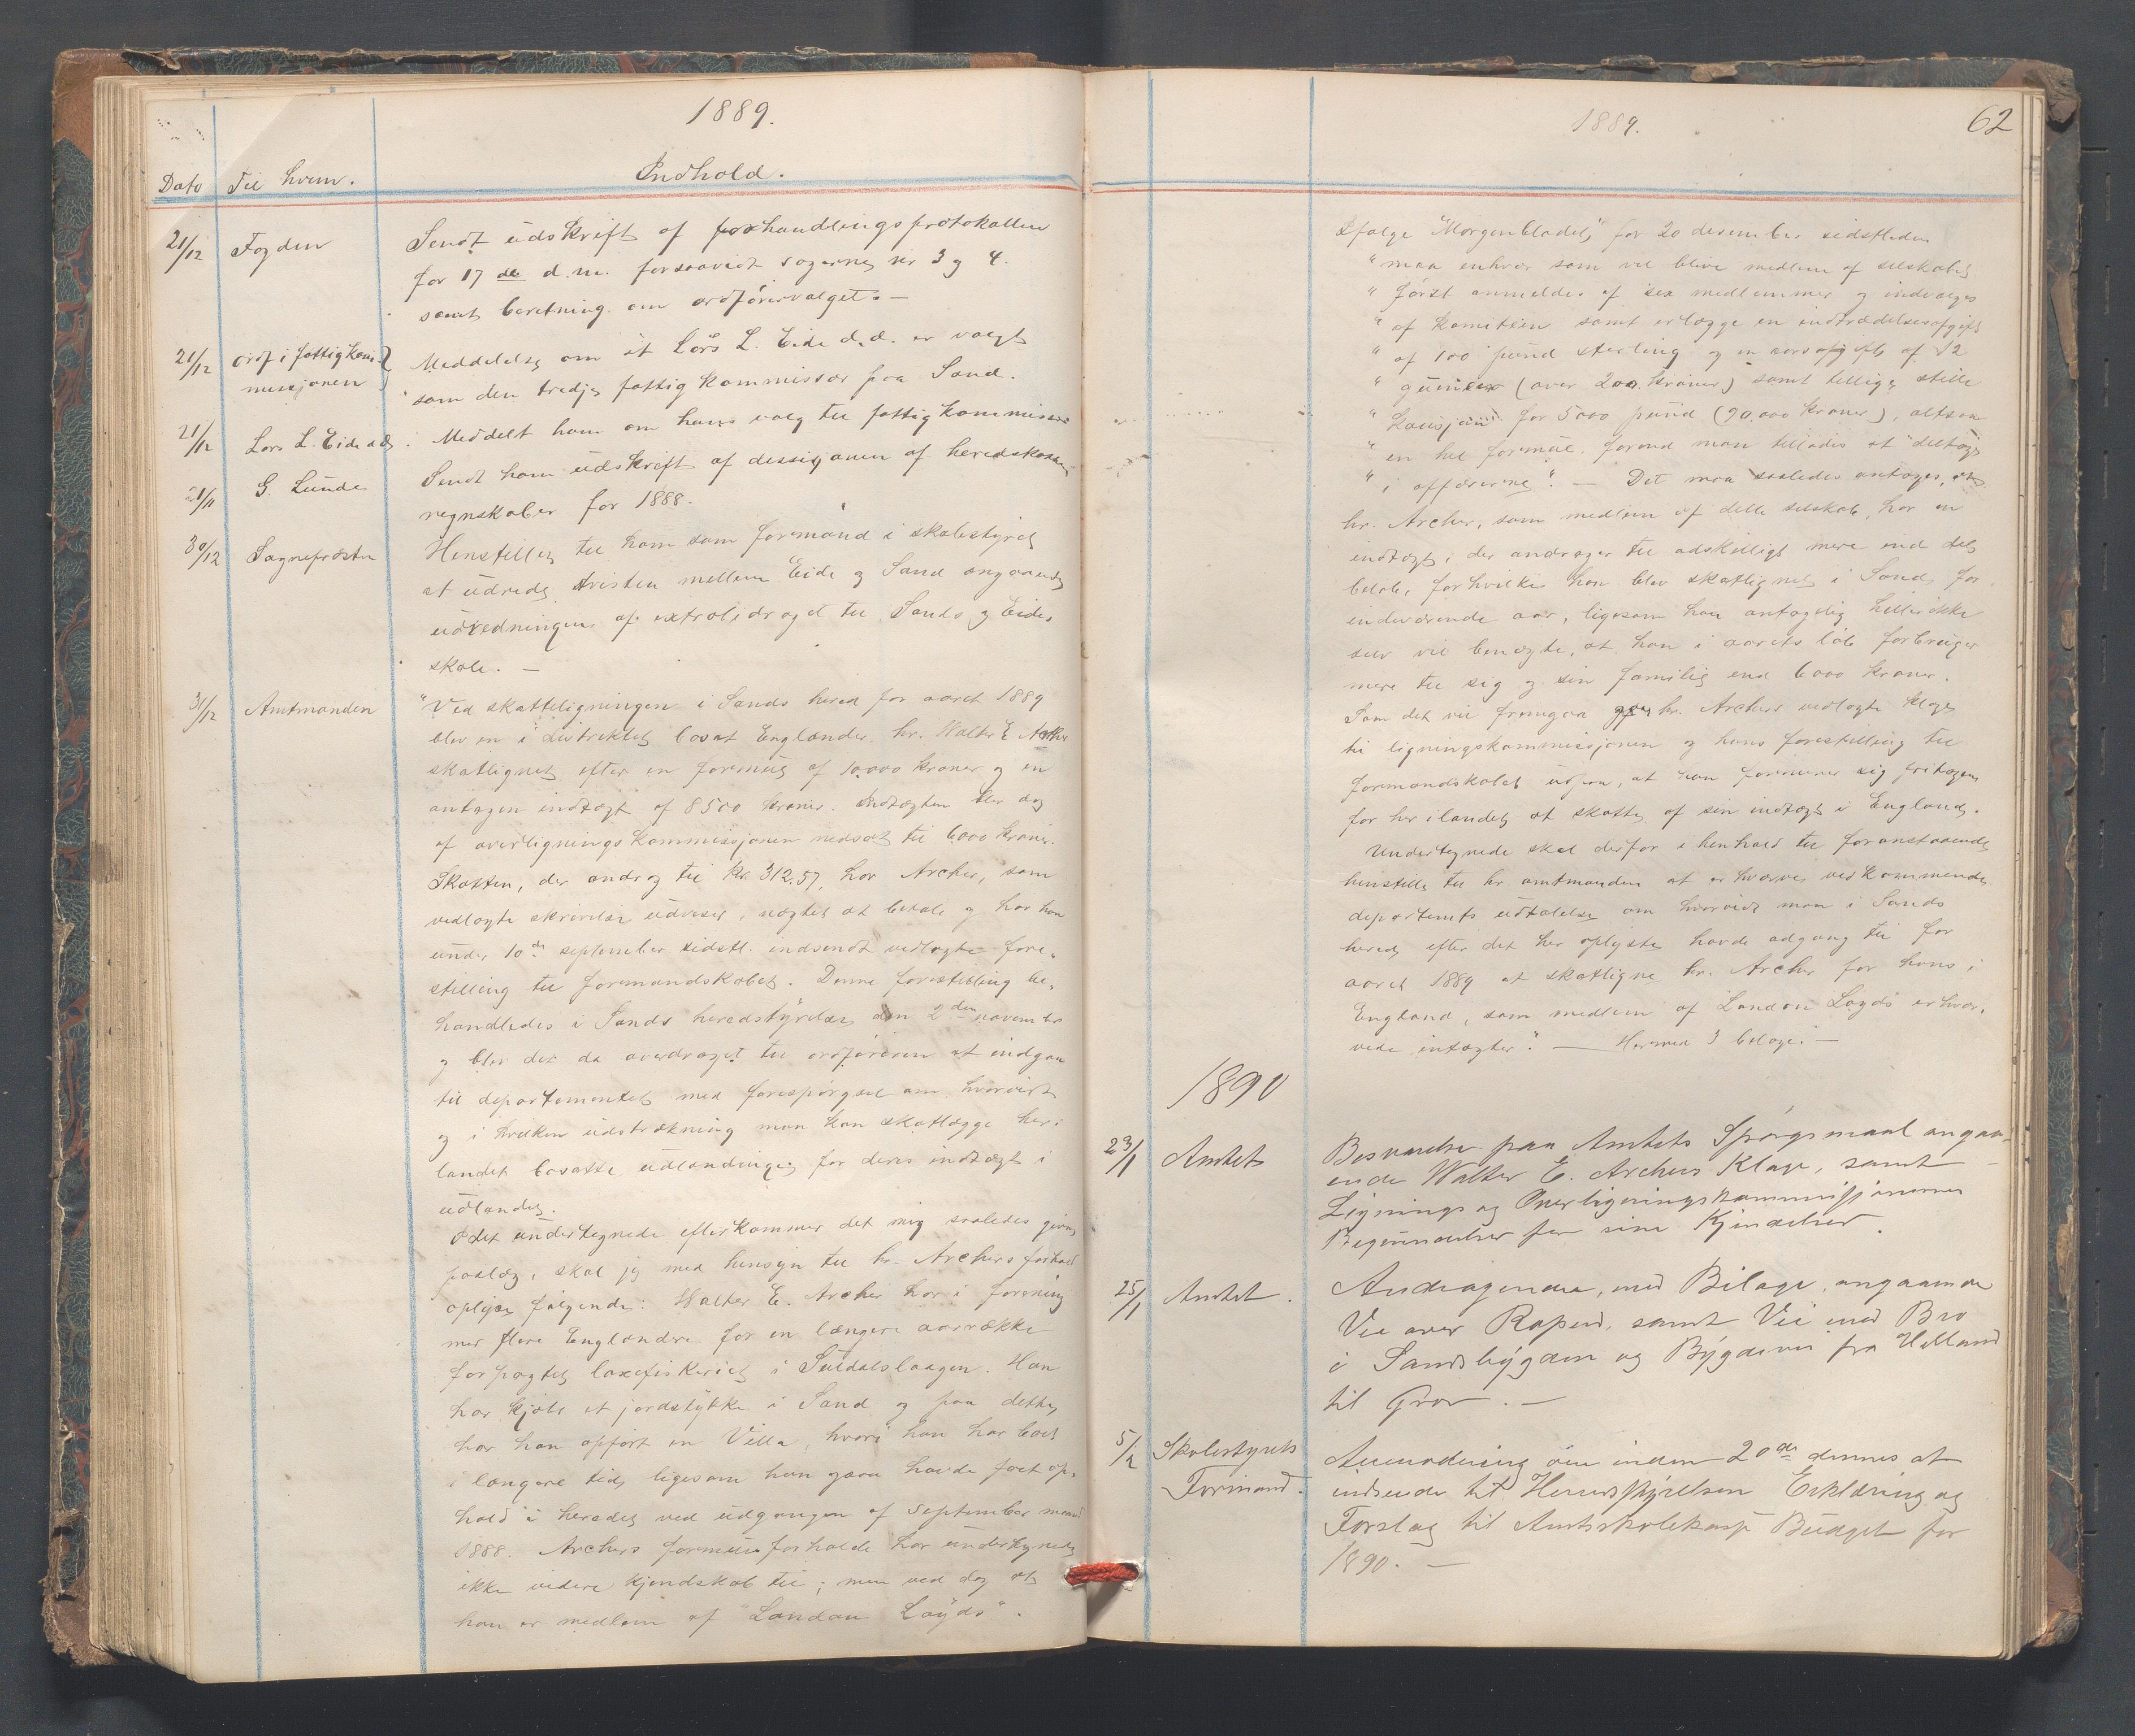 1889.
Dato Til hvem. Indhold.
21/12 Fogden Sendt udskrift af forhandlingsprotokollen
for 17 de d.m. forsaavidt sagerne nr 3 og 4.
samt beretning om ordførervalget. —
21/12 ordf. i fattigkom- Meddelelse om at Lars L. Eide d.æ. er valgt
missjonen som den tredje fattigkommissær paa Sand.
21/12 Lars L. Eide d.æ. Meddelt ham om hans valg til fattigkommissær
21/12 G. Lunde Sendt ham udskrift af dessisjonen af heredskasse-
regnskaber for 1888.
30/12 Sognepræsten Henstillet til ham som formand i skolestyret
at udrede tvisten mellem Eide og Sand angaaende
udredningen af extrabidraget til Sands og Eides
skole. —
31/12 Amtmanden "Ved skatteligningen i Sands hered for aaret 1889
blev en i distriktet bosat Englænder, hr. Walter E Archer
skatlignet efter en formue af 10.000 kroner og en
antagen indtægt af 8500 kroner. Indtægten blev dog
af overligningskommissjonen nedsat til 6000 kroner.
Skatten, der androg til kr. 312.57, har Archer, som
vedlagte skrivelse udviser, nægtet at betale og har han
under 10de september sidstl. indsendt vedlagte fore-
stilling til formandskabet. Denne forestilling be-
handledes i Sands heredstyrelse den 2den november
og blev det da overdraget til ordføreren at indgaa
til departementet med forespørgsel om hvorvidt
og i hvilken udstrækning man kan skatlægge her i
landet bosatte udlændinge for deres indtægt i
udlandet.
Idet undertegnede efterkommer det mig saaledes givne
paalæg, skal jeg med hensyn til hr. Archers forhold
oplyse følgende: Walter E. Archer har i forening
med flere Englændre for en længere aarrække
forpagtet laxefiskeriet i Suldalslaagen. Han
har kjøbt et jordstykke i Sand og paa dette
har han opført en Villa, hvori han har boet
i længere tid, ligesom han havde fast op-
hold i heredet ved udgangen af september maaned
1888. Archers formuesforholde har undertegnede
ikke videre kjendskab til; men ved dog at
han er medlem af "London Loyds".
1889. 62
Ifølge "Morgenbladet" for 20 desember sidstleden
" maa enhver som vil blive medlem af selskabet
" først anmeldes af sex medlemmer og indvælges
" af komiteen samt erlægge en indtrædelsesafgift
" af 100 pund sterling og en aarsafgift af 12
" guineer (over 200 kroner) samt tillige stille
" kausjon for 5000 pund (90.000 kroner), altsaa
" en hel formue, forend man tillades at deltage
" i affærerne". — Det maa saaledes antages, at
hr. Archer, som medlem af dette selskab, har en
indtægt, der andrager til adskilligt mere end det
beløb, for hvilket han blev skatlignet i Sand for
indeværende aar, ligesom han antagelig heller ikke
selv vil benægte, at han i aarets løb forbruger
mere til sig og sin familie end 6000 kroner.
Som det vil fremgaa hr. Archers vedlagte klage
til ligningskommissjonen og hans forestilling til
formandskabet udpaa, at han formener sig fritagen
for her i landet at skatte af sin indtægt i England.
Undertegnede skal derfor i henhold til foranstaaende
henstille til hr. amtmanden at erhverve vedkommende
departements udtalelse om hvorvidt man i Sands
hered efter det her oplyste havde adgang til for
aaret 1889 at skatligne hr. Archer for hans i
England, som medlem af London Loyds erhver-
vede intægter". — Hermed 3 bilage. —
1890
23/1 Amtet Besvarelse paa Amtets Spørgsmaal angaa-
ende Walter E. Archers Klage, samt
Lignings og Overligningskommissjonernes
Begrundelser for sine Kjendelser.
25/1 Amtet. Andragender, med Bilage, angaaende
Vei over Ropeid, samt Vei med Bro
i Sandsbygden og Bygdevei fra Helland
til Grov. —
5/2 Skolestyrets Anmodning om inden 20de dennes at
Formand. indsende til Heredsstyrelsen Erklæring og
Forslag til Amtsskolekasse Budget for
1890. —